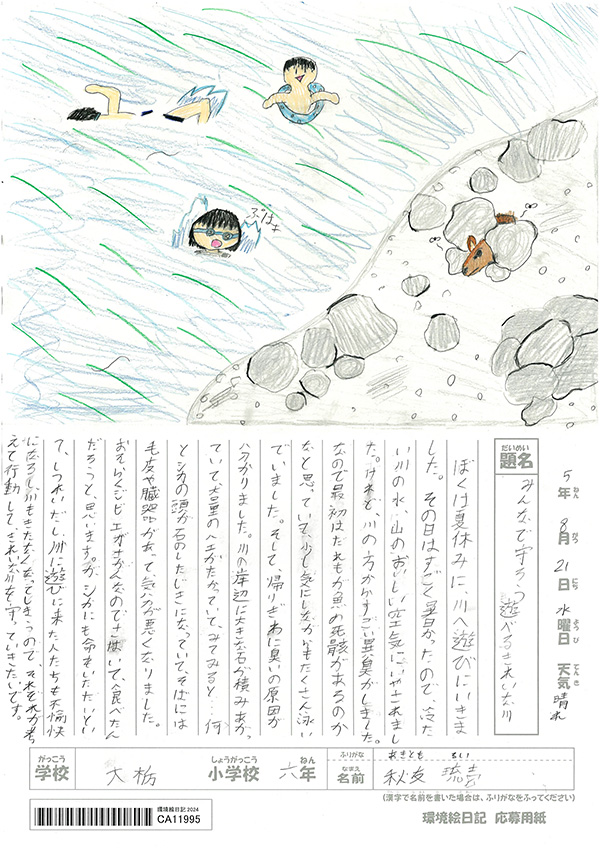 ぷはぁ
5年 8月 21日 水曜日 天気 晴れ
ねん がつ にち ようび てんき
だいめい
題名
みんなで守ろう 遊べるきれいな川
ぼくは夏休みに、川へ遊びにいきま
した。その日はすごく暑かったので、冷た
い川の水、山のおいしい空気にいやされまし
た。けれど川の方からすごい異臭がしました。
なので最初はだれもが魚の死骸があるのか
なと思っていて、少し気にしながらもたくさん泳い
でいました。そして、帰りぎわに臭いの原因が
分かりました。川の岸辺に大きな石が積みあが
っていて大量のハエがたかっていて、みてみると…何
とシカの頭が石のしたじきになっていて、そばには
毛皮や臓器があって、気分が悪くなりました。
おそらくジビエがさかんなのでさばいて、食べたん
だろうと、思います。が、シカにも命をいただいとい
て、しつれいだし、川に遊びに来た人たちも不愉快
になるし、川もきたなくなってしまうので、それぞれが考
えて行動して、きれいな川を守っていきたいです。
がっこう しょうがっこう ねん ふりがな あきとも るい
学校 大栃 小学校 六年 なまえ 名前 秋友
(漢字で名前を書いた場合は、ふりがなをふってください)
環境絵日記2024
CA11995
環境絵日記 応募用紙